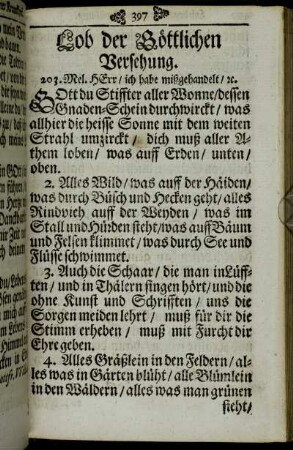 397
Lob der Göttlichen
Versehung.
203. Mel. HErr / ich habe mißgehandelt / ꝛc.
GOtt du Stiffter aller Wonne / dessen
Gnaden-Schein durchwirckt / was
allhier die heisse Sonne mit dem weiten
Strahl umzirckt / Dich muß aller A-
them loben / was auff Erden / unten /
oben.
2. Alles Wild / was auff der Häiden /
was durch Büsch und Hecken geht / alles
Rindvieh auff der Weyden / was im
Stall und Hürden steht / was auff Bäum
und Felsen klimmet / was durch See und
Flüsse schwimmet.
3. Auch die Schaar / die man in Lüff-
ten / und in Thälern singen hört / und die
ohne Kunst und Schrifften / uns die
Sorgen meiden lehrt / muß für dir die
Stimm erheben / muß mit Furcht dir
Ehre geben.
4. Alles Gräßlein in den Feldern / al-
les was in Gärten blüht / alle Blümlein
in den Wäldern / alles was man grünen
sieht /